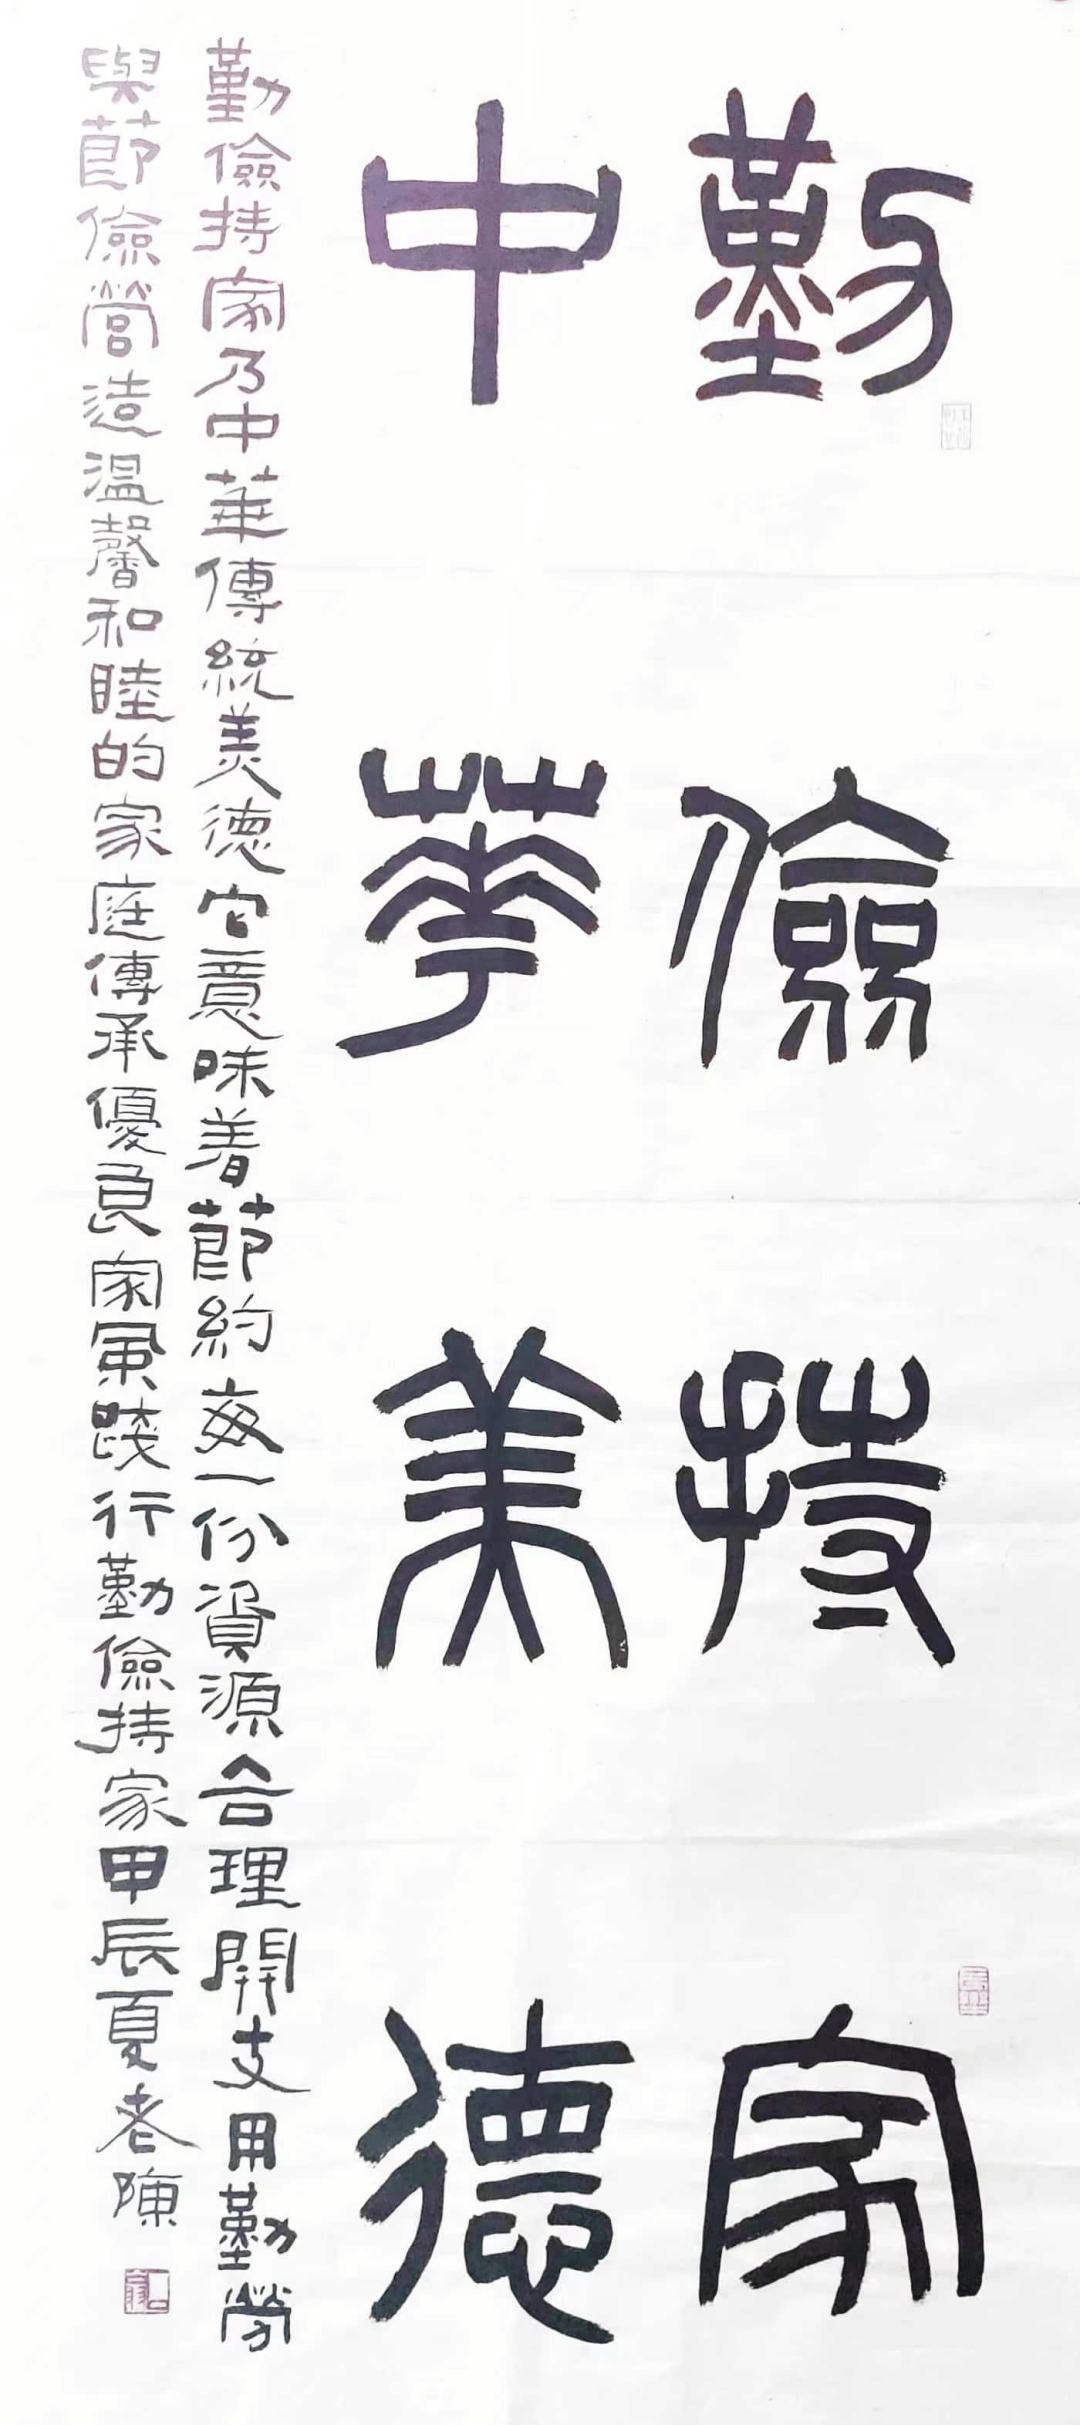 勤儉持家
中華美德
勤儉持家乃中華傳統美德它意味着節約每一份資源合理開支用勤勞
與節儉營造溫馨和睦的家庭傳承優良家風踐行勤儉持家甲辰夏老陳